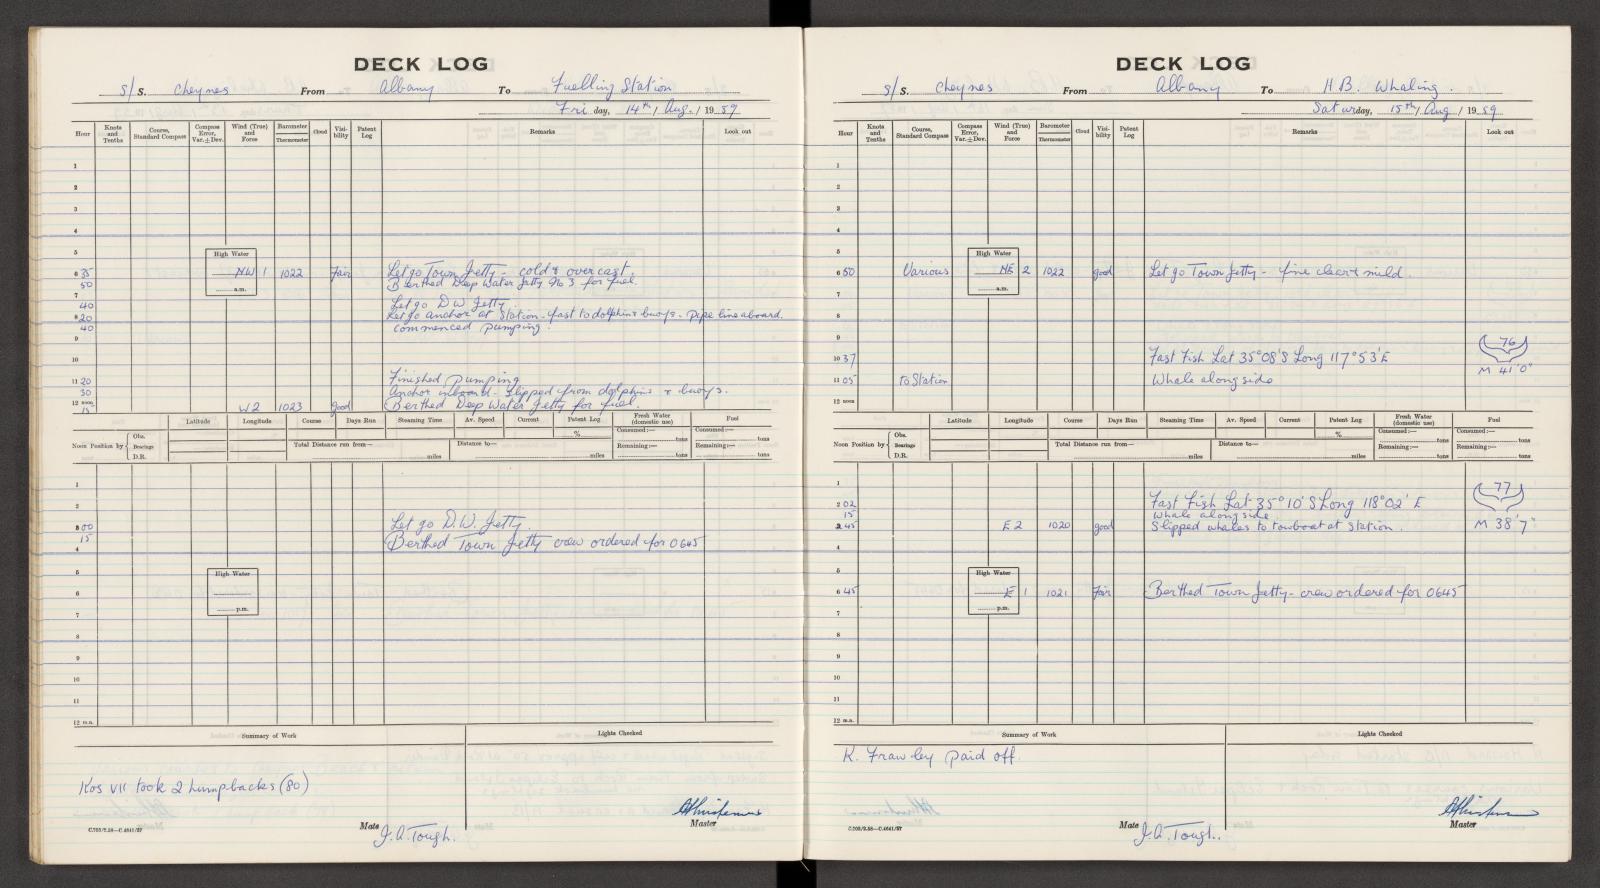 DECK LOG
S/S. Cheynes From Albany To Fuelling Station
Friday, 14th/Aug./1959
Hour Knots and Tenths Course, Standard Compass Compass Error, Var. ± Dev. Wind (True) and Force Barometer Thermometer Cloud Visibility Patent Log Remarks Look out
1
2
3
4
5 High Water
6 35 NW 1 1022 Fair Let go Town Jetty - cold & overcast.
50 Berthed Deep Water Jetty No 3 for fuel.
a.m.
7
40 Let go D W Jetty.
8 20 Let go anchor at Station - fast to dolphin & buoys - Pipe line aboard.
40 Commenced pumping.
9
10
11 20 Finished pumping
30 Anchor inboard - Slipped from dolphins & buoys.
12 noon 15 W 2 1023 good Berthed Deep Water Jetty for fuel
Latitude Longitude Course Days Run Steaming Time Av. Speed Current Patent Log Fresh Water (domestic use) Fuel
Noon Position by Obs. Bearings D.R. Total Distance run from— miles Distance to— miles % Consumed:— tons Remaining:— tons Consumed:— tons Remaining:— tons
1
2
3 00 Let go D.W. Jetty.
15 Berthed Town Jetty crew ordered for 0645
4
5 High Water
6
p.m.
7
8
9
10
11
12 m.n.
Summary of Work Lights Checked
Kos VII took 2 humpbacks (80)
C.703/2.58—C.4641/57 Mate J.A. Tough. Master
DECK LOG
S/S. Cheynes From Albany To H.B. Whaling.
Saturday, 15th/Aug/1959
Hour Knots and Tenths Course, Standard Compass Compass Error, Var. ± Dev. Wind (True) and Force Barometer Thermometer Cloud Visibility Patent Log Remarks Look out
1
2
3
4
5 High Water
6 50 Various NE 2 1022 good Let go Town Jetty - fine clear & mild.
a.m.
7
8
9
76
10 37 Fast Fish Lat 35°08'S Long 117°53'E
M 41'0"
11 05 to Station Whale alongside
12 noon
Latitude Longitude Course Days Run Steaming Time Av. Speed Current Patent Log Fresh Water (domestic use) Fuel
Noon Position by Obs. Bearings D.R. Total Distance run from— miles Distance to— miles % Consumed:— tons Remaining:— tons Consumed:— tons Remaining:— tons
1
77
2 02 Fast Fish Lat 35°10'S Long 118°02'E
15 Whale alongside
3 45 E 2 1020 good Slipped whales to towboat at Station.
M 38'7"
4
5 High Water
6 45 E 1 1021 Fair Berthed Town Jetty - crew ordered for 0645
p.m.
7
8
9
10
11
12 m.n.
Summary of Work Lights Checked
K. Frawley paid off.
C.703/2.58—C.4641/57 Mate J.A. Tough. Master